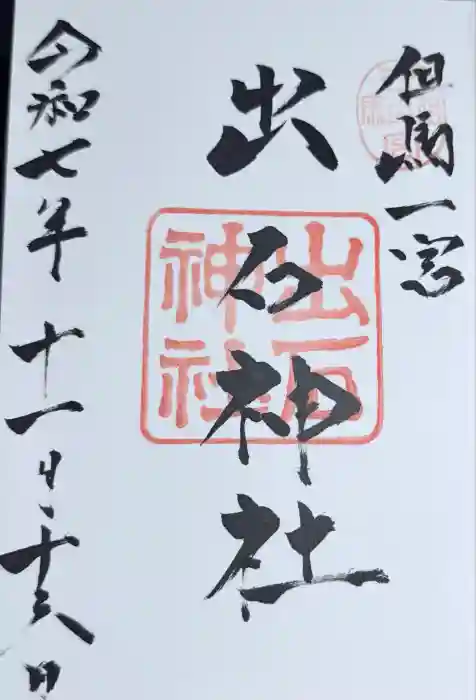 但馬一宮
出石神社
出石神社
令和七年十一月二十六日